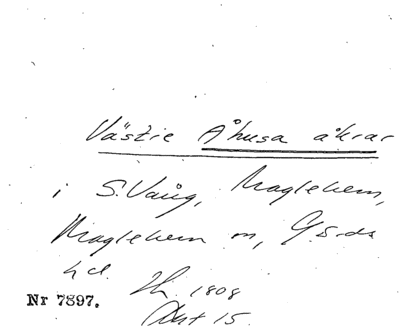 Västre Åhusa åkrar
i S.Vång, Maglehem,
Maglehem sn, Gärds
hd. 1808
Akt 15.
Nr 7897.